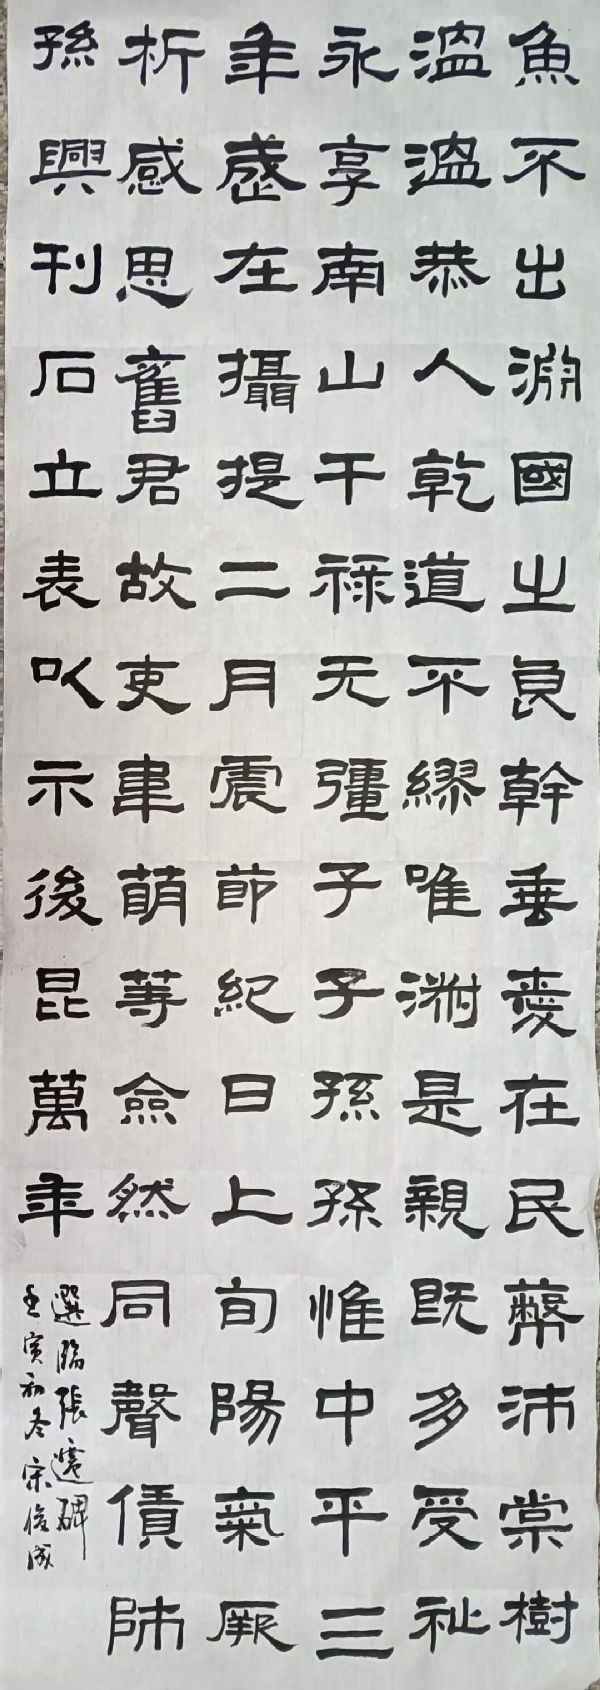 魚不出渊國之良幹垂愛在民蔽沛棠樹
溫溫恭人乾道不繆唯淑是親既多受祉
永享南山干禄无彊子子孫孫惟中平三
年歲在攝提二月震節紀日上旬陽氣厥
析感思舊君故吏韋萌等僉然同聲債師
孫興刊石立表以示後昆萬年
選臨張遷碑
壬寅初冬宋俊成